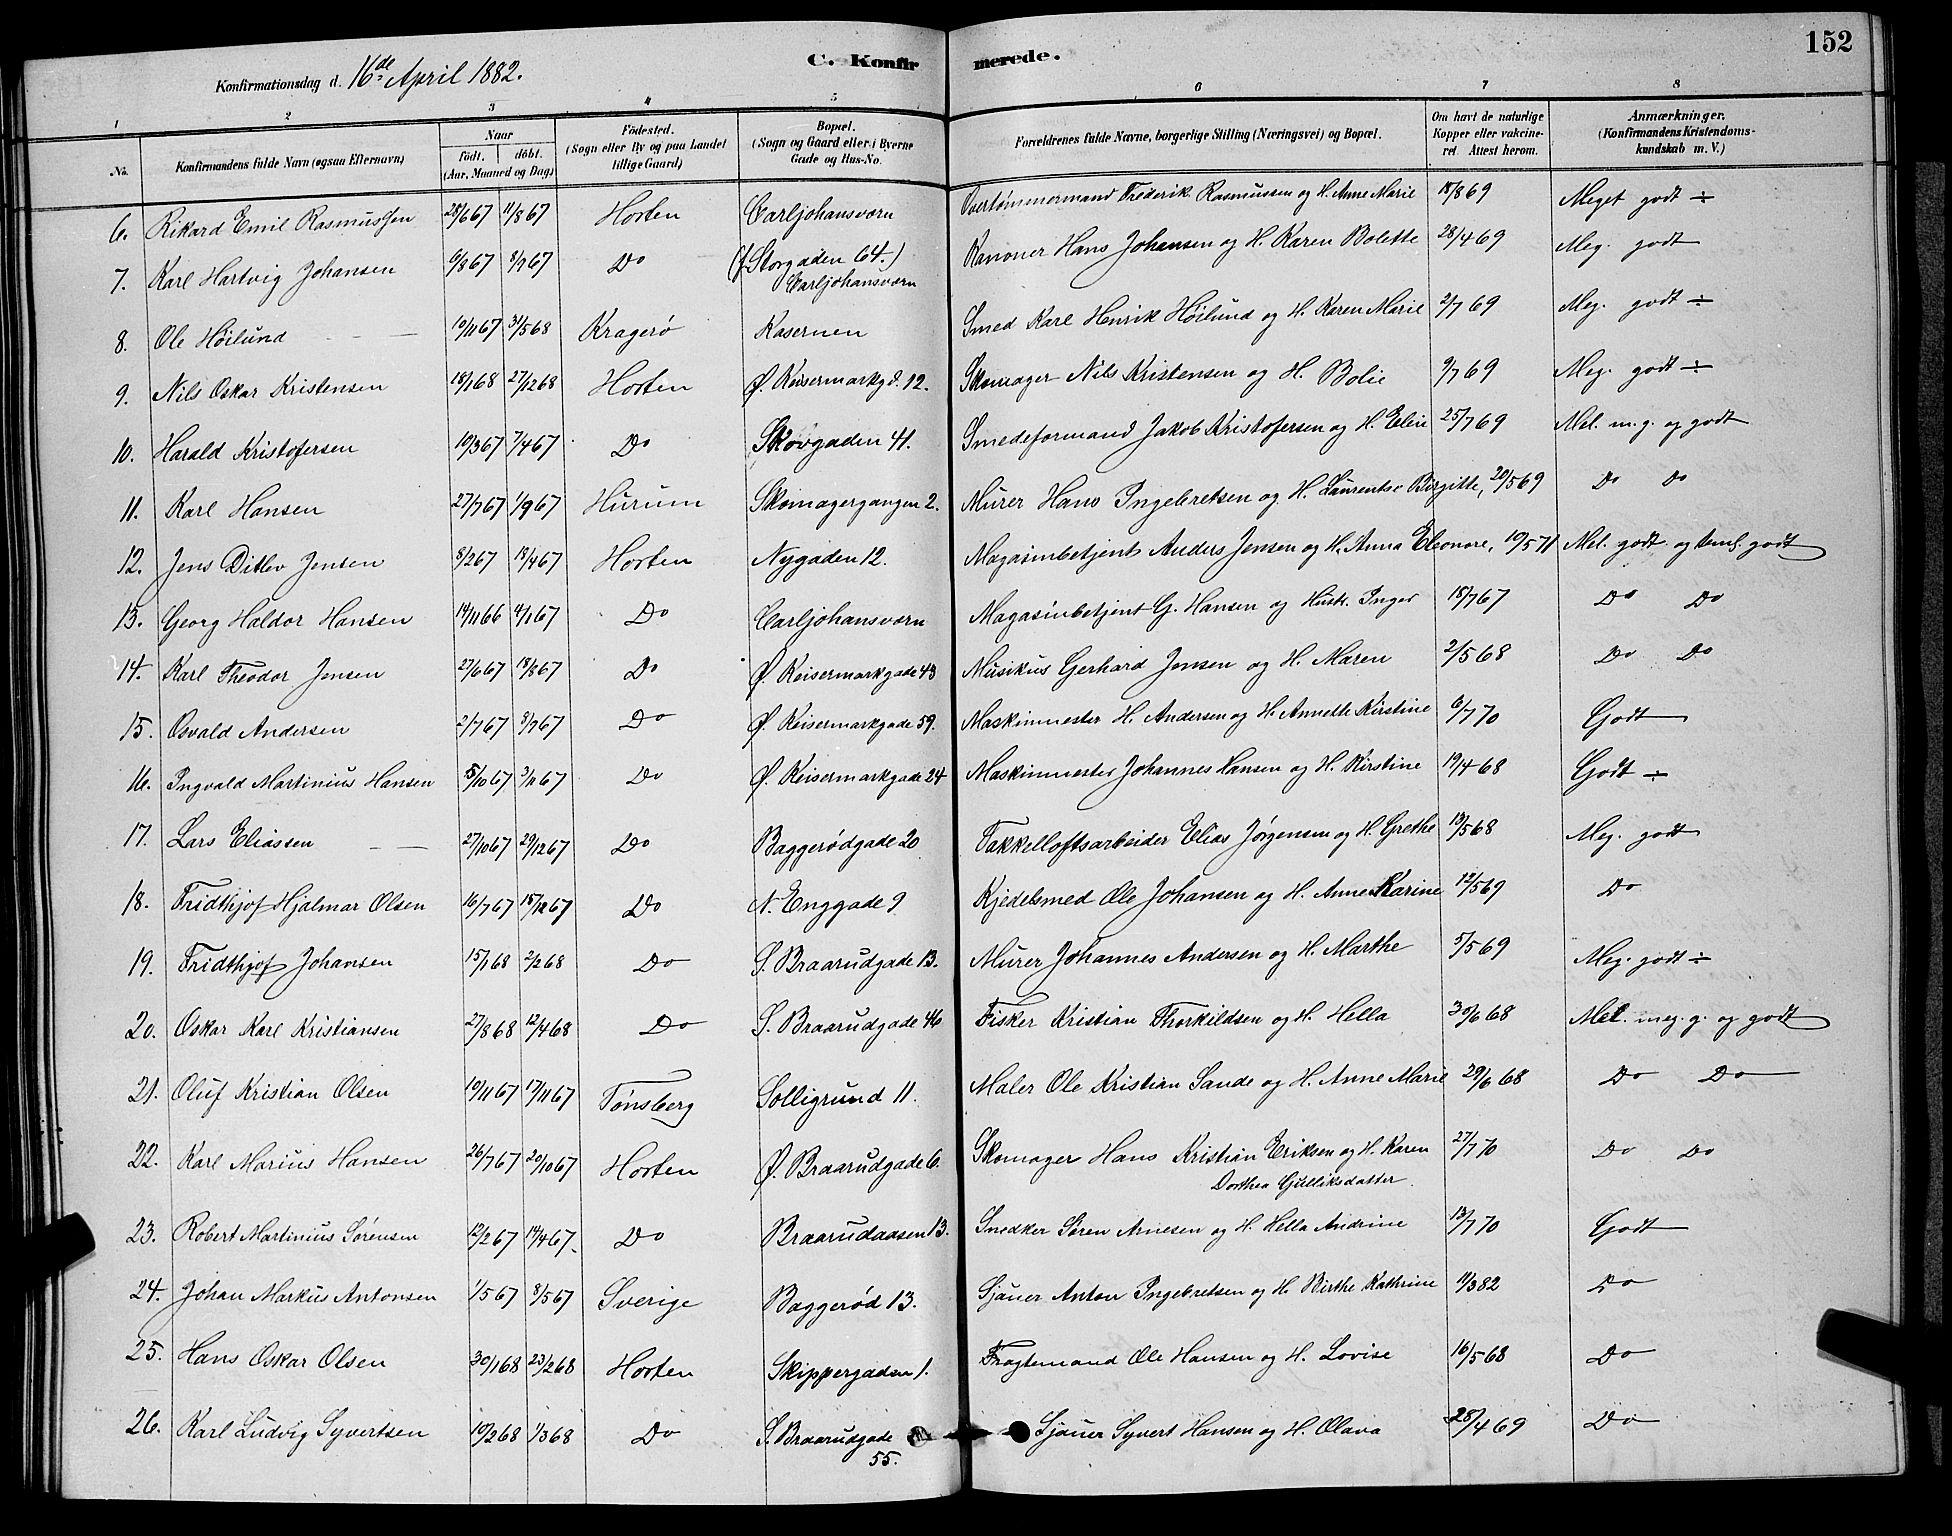 152
Konfirmationsdag d. 16de April 1882.
C. Konfirmerede.
1 2 3 4 5 6 7 8
No. Konfirmandens fulde Navn (ogsaa Efternavn) Naar födt. döbt. (Aar, Maaned og Dag) Födested. (Sogn eller By og paa Landet tillige Gaard) Bopæl. (Sogn og Gaard eller i Byerne Gade og Hus-No. Forældrenes fulde Navne, borgerlige Stilling (Næringsvei) og Bopæl. Om havt de naturlige Kopper eller vakcineret. Attest herom. Anmærkninger. (Konfirmandens Kristendomskundskab m. V.)
6. Rikard Emil Rasmussen 28/6 67 11/8 67 Horten Carljohansværn Overtømmermand Frederik Rasmussen og H. Anne Marie 18/8 69 Meget godt ÷
7. Karl Hartvig Johansen 6/8 67 8/9 67 Do (f. Storgaden 64.) Carljohansværn Kanoner Hans Johansen og H. Karen Bolette 28/4 69 Meg. godt
8. Ole Höilund 10/11 67 31/5 68 Kragerø Kasernen Smed Karl Henrik Höilund og H. Karen Marie 2/7 69 Meg. godt ÷
9. Nils Oskar Kristensen 18/1 68 27/12 68 Horten Ø. Keisermarkgd. 12. Skomager Nils Kristensen og H. Bolie 9/7 69 Meg. godt ÷
10. Harald Kristofersen 10/3 67 7/4 67 Do Skovgaden 41. Smedeformand Jakob Kristofersen og H. Elin 25/7 69 Mel. m. g. og godt
11. Karl Hansen 27/7 67 1/9 67 Hurum Skomagergangen 2. Murer Hans Ingebretsen og H. Laurentse Birgitte, 20/5 69 Do Do
12. Jens Ditlev Jensen 8/2 67 18/4 67 Horten Nygaden 12. Magasinbetjent Anders Jensen og H. Anna Eleonore, 10/5 71 Mel. godt og teml. godt
13. Georg Haldor Hansen 14/11 66 4/1 67 Do Carljohansværn Magasinbetjent G. Hansen og Hustr. Inger 18/7 67 Do Do
14. Karl Theodor Jensen 27/6 67 18/8 67 Do Ø. Keisermarkgade 43 Musikus Gerhard Jensen og H. Maren 2/5 68 Do Do
15. Osvald Andersen 2/7 67 8/9 67 Do Ø. Keisermarkgade 59. Maskinmester H. Andersen og H. Annette Kirstine 6/7 70 Godt
16. Ingvald Martinius Hansen 5/10 67 3/11 67 Do Ø. Keisermarkgade 24 Maskinmester Johannes Hansen og H. Kirstine 19/4 68 Godt ÷
17. Lars Eliassen 27/10 67 29/12 67 Do Baggerødgade 20 Takkelloftsarbeider Elias Jørgensen og H. Grethe 13/5 68 Meg. godt
18. Fridthjof Hjalmar Olsen 16/7 67 15/12 67 Do N. Enggade 9 Kjedelsmed Ole Johansen og H. Anne Karine 12/5 69 Do
19. Fridthjof Johansen 15/1 68 2/2 68 Do S. Braarudgade 13. Murer Johannes Andersen og H. Marthe 5/5 69 Meg. godt ÷
20. Oskar Karl Kristiansen 27/8 68 12/4 68 Do S. Braarudgade 46 Fisker Kristian Thorkildsen og H. Hella 30/6 68 Mel. meg. g. og godt
21. Oluf Kristian Olsen 10/11 67 17/11 67 Tønsberg Solligrund 11. Maler Ole Kristian Sande og H. Anne Marie 29/6 68 Do Do
22. Karl Marius Hansen 26/7 67 20/10 67 Horten Ø. Braarudgade 6. Skomager Hans Kristian Eriksen og H. Karen Dorthea Gulliksdatter 27/7 70 Do Do
23. Robert Martinius Sørensen 12/2 67 14/4 67. Do Braarudaasen 13. Snedker Søren Arnesen og H. Hella Andrine 13/7 70 Godt
24. Johan Markus Antonsen 1/5 67 8/5 67 Sverige Baggerød 13. Sjauer Anton Ingebretsen og H. Birthe Kathrine 11/3 82 Do
25. Hans Oskar Olsen 30/1 68 23/2 68 Horten Skippergaden 1. Fragtemand Ole Hansen og H. Lovise 16/5 68 Do
26. Karl Ludvig Syvertsen 10/2 68 1/3 68 Do S. Braarudgade 55. Sjauer Syvert Hansen og H. Olava 28/4 69 Do